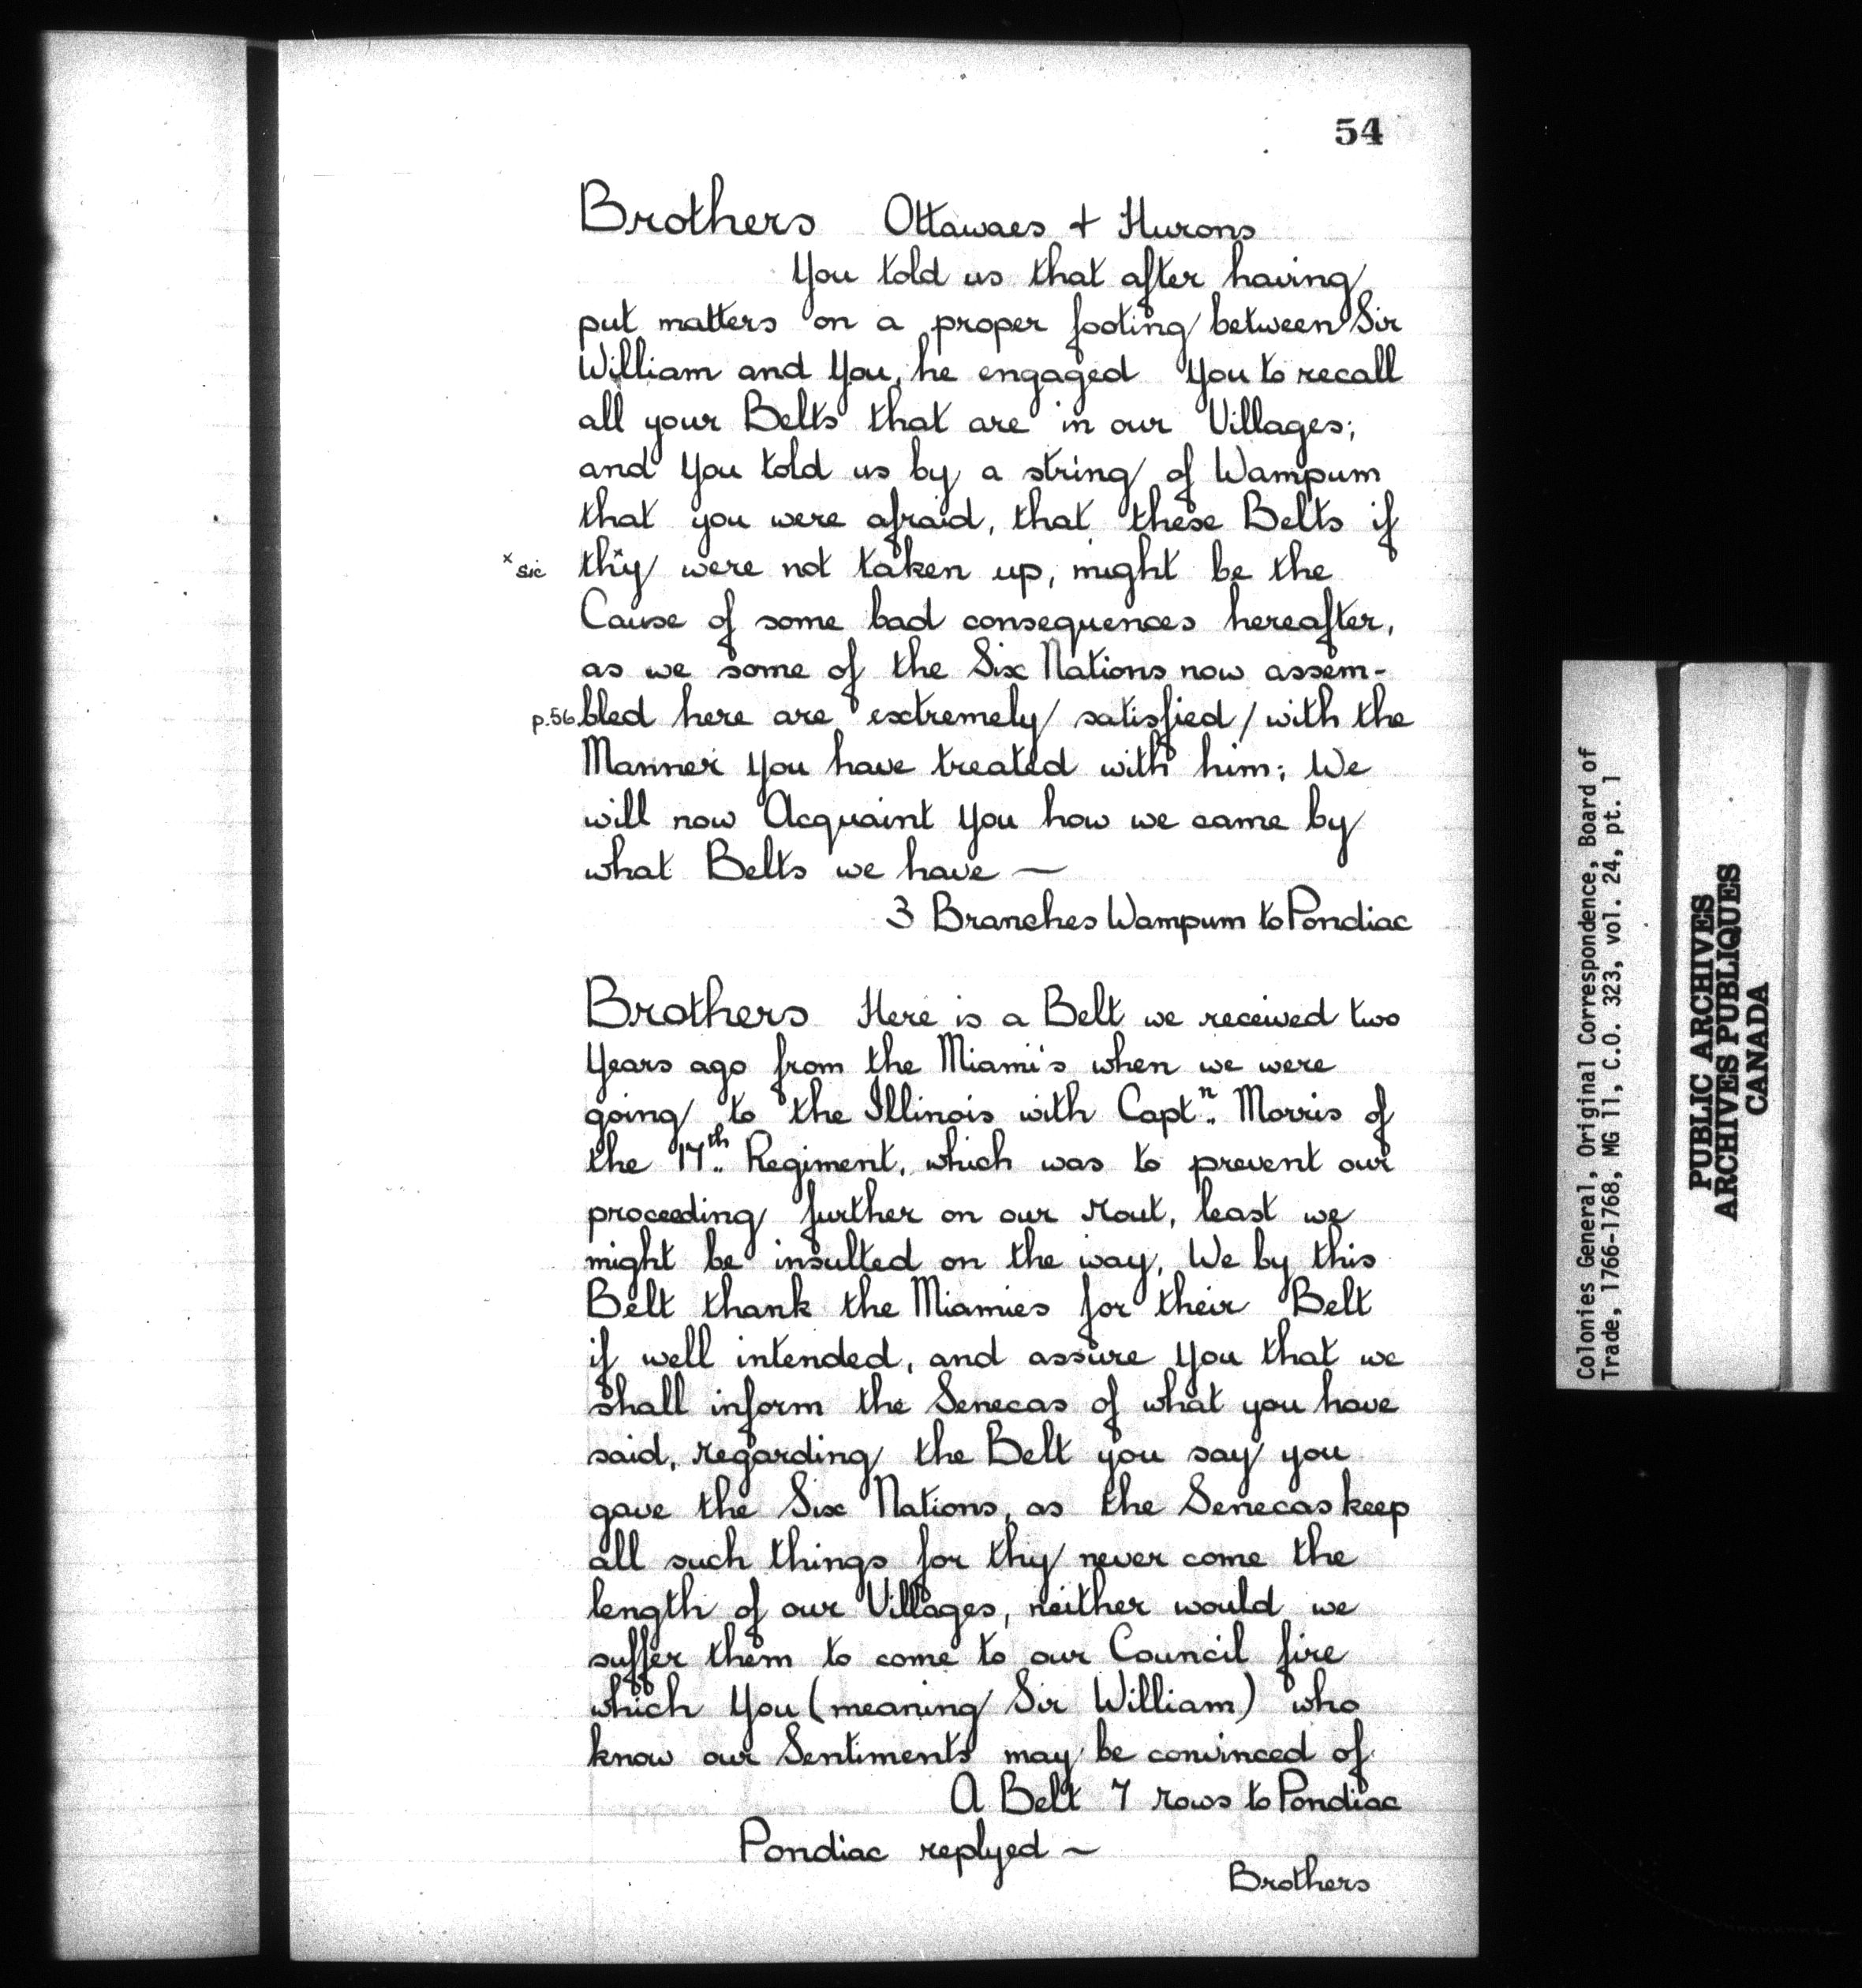 54
Brothers Ottawaes + Hurons
You told us that after having
put matters on a proper footing between Sir
William and You, he engaged You to recall
all your Belts that are in our Villages;
and You told us by a string of Wampum
that you were afraid, that these Belts if
x sic thy x were not taken up, might be the
Cause of some bad consequences hereafter,
as we some of the Six Nations now assem-
p.56 bled here are extremely satisfied / with the
Manner You have treated with him; We
will now Acquaint You how we came by
what Belts we have —
3 Branches Wampum to Pondiac
Brothers Here is a Belt we received two
Years ago from the Miami's when we were
going to the Illinois with Captn. Morris of
the 17th. Regiment, which was to prevent our
proceeding further on our rout, least we
might be insulted on the way, We by this
Belt thank the Miamies for their Belt
if well intended, and assure You that we
shall inform the Senecas of what you have
said, regarding the Belt you say you
gave the Six Nations, as the Senecas keep
all such things for thy never come the
length of our Villages, neither would we
suffer them to come to our Council fire
which You (meaning Sir William) who
know our Sentiments may be convinced of
A Belt 7 rows to Pondiac
Pondiac replyed ~
Brothers
Colonies General, Original Correspondence, Board of
Trade, 1766-1768, MG 11, C.O. 323, vol. 24, pt. 1
PUBLIC ARCHIVES
ARCHIVES PUBLIQUES
CANADA